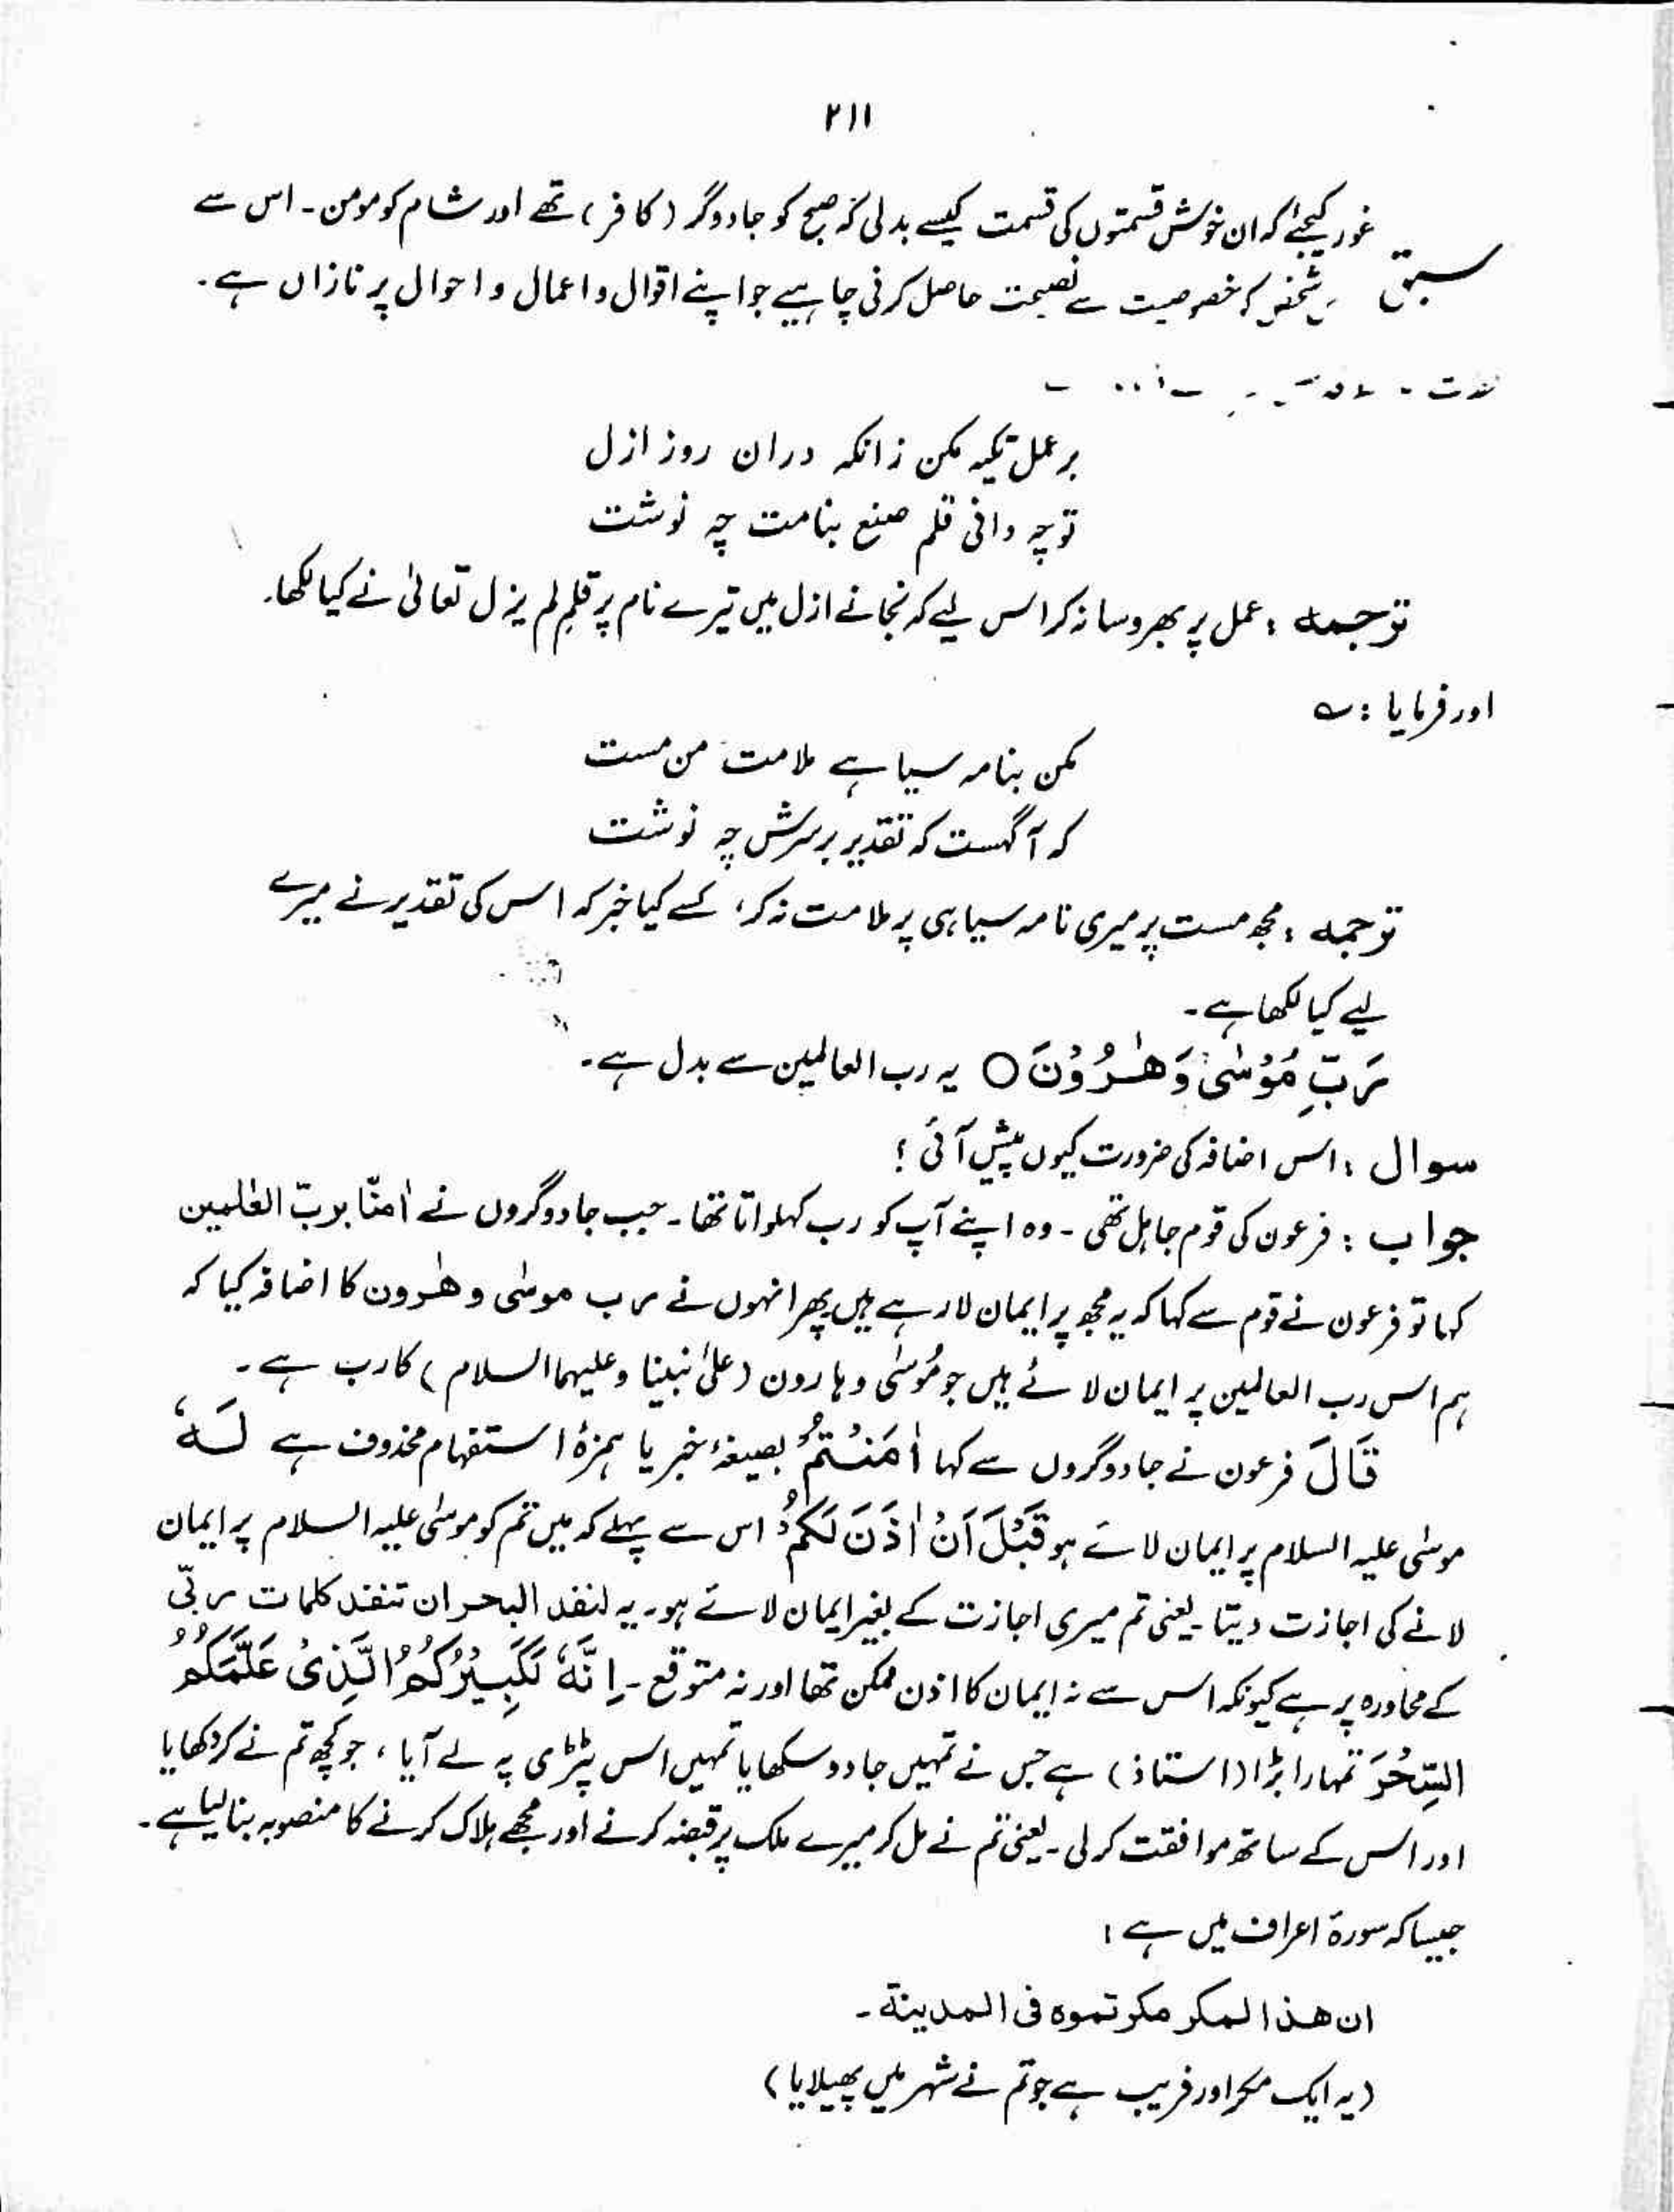 ۲۱۱
غور کیجئے کہ ان خوش قسمتوں کی قسمت کیسے بدلی کہ صبح کو جادوگر (کافر) تھے اور شام کو مومن۔ اس سے
سبق شخص کو خصوصیت سے نصیحت حاصل کرنی چاہیے جو اپنے اقوال و اعمال و احوال پر نازاں ہے۔
بر عمل تکیہ مکن زانکہ دران روز ازل
تو چہ دانی قلم صنع بنامت چہ نوشت
ترجمہ : عمل پر بھروسا نہ کر اس لیے کہ نجانے ازل میں تیرے نام پر قلمِ لم یزل تعالیٰ نے کیا لکھا۔
اور فرمایا : ؎
مکن بنامہ سیاہے ملامت من مست
کہ آگہست کہ تقدیر برسرش چہ نوشت
ترجمہ : مجھ مست پر میری نامہ سیاہی پر ملامت نہ کر، کسے کیا خبر کہ اس کی تقدیر نے میرے
لیے کیا لکھا ہے۔
رَبِّ مُوْسٰى وَهٰرُوْنَ ○ یہ رب العالمین سے بدل ہے۔
سوال : اس اضافہ کی ضرورت کیوں پیش آئی ؟
جواب : فرعون کی قوم جاہل تھی ۔ وہ اپنے آپ کو رب کہلواتا تھا ۔ جب جادوگروں نے اٰمنّا بربّ العٰلمین
کہا تو فرعون نے قوم سے کہا کہ یہ مجھ پر ایمان لا رہے ہیں پھر انہوں نے رب موسٰی و ھٰرون کا اضافہ کیا کہ
ہم اس رب العالمین پر ایمان لائے ہیں جو مُوسٰی و ہارون (علیٰ نبینا وعلیہما السلام) کا رب ہے ۔
قَالَ فرعون نے جادوگروں سے کہا اٰمَنْتُمْ بصیغۂ خبر یا ہمزۂ استفہام محذوف ہے لَهٗ
موسٰی علیہ السلام پر ایمان لائے ہو قَبْلَ اَنْ اٰذَنَ لَكُمْ اس سے پہلے کہ میں تم کو موسٰی علیہ السلام پر ایمان
لانے کی اجازت دیتا ۔ یعنی تم میری اجازت کے بغیر ایمان لائے ہو۔ یہ لنفد البحر ان تنفد کلمات ربّی
کے محاورہ پر ہے کیونکہ اس سے نہ ایمان کا اذن ممکن تھا اور نہ متوقع ۔ اِنَّهٗ لَكَبِيْرُكُمُ الَّذِىْ عَلَّمَكُمُ
السِّحْرَ تمہارا بڑا (استاذ) ہے جس نے تمہیں جادو سکھایا تمہیں اس پٹڑی پہ لے آیا ، جو کچھ تم نے کر دکھایا
اور اس کے ساتھ موافقت کر لی ۔ یعنی تم نے مل کر میرے ملک پر قبضہ کرنے اور مجھے ہلاک کرنے کا منصوبہ بنا لیا ہے ۔
جیسا کہ سورۃ اعراف میں ہے :
ان ھذا لمکر مکرتموہ فی المدینة ۔
(یہ ایک مکر اور فریب ہے جو تم نے شہر میں پھیلایا)